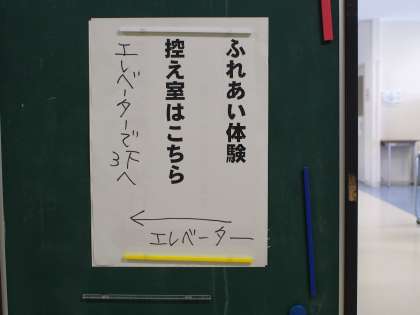 ふれあい体験
控え室はこちら
エレベーターで
3下へ
エレベーター